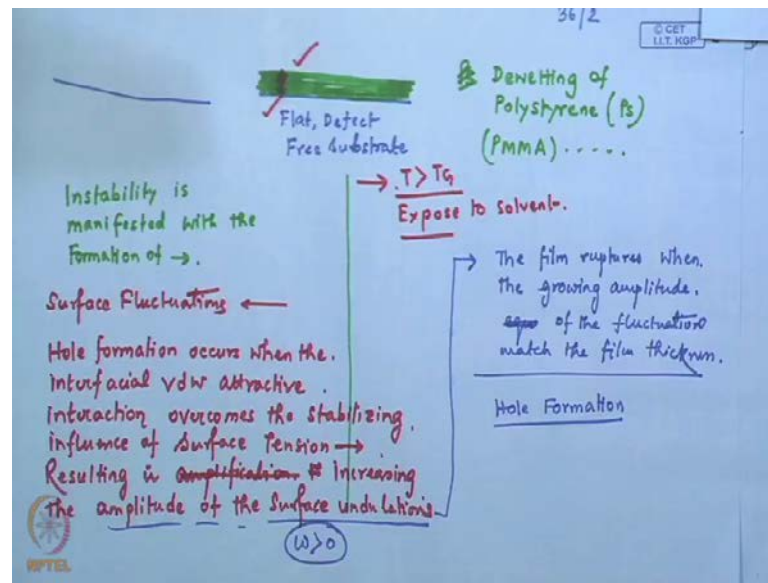 36/2
© CET
I.I.T. KGP
Flat, Defect
Free Substrate
Dewetting of
Polystyrene (PS)
(PMMA) .....
→ T > TG
Expose to solvent.
Instability is
manifested with the
Formation of →.
Surface Fluctuations ←
Hole formation occurs when the.
interfacial vdw attractive.
interaction overcomes the stabilizing.
influence of Surface Tension →
Resulting in amplification Increasing
the amplitude of the Surface undulations
ω>0
→ The film ruptures when.
the growing amplitude.
of the fluctuations
match the film thickness.
Hole Formation
NPTEL